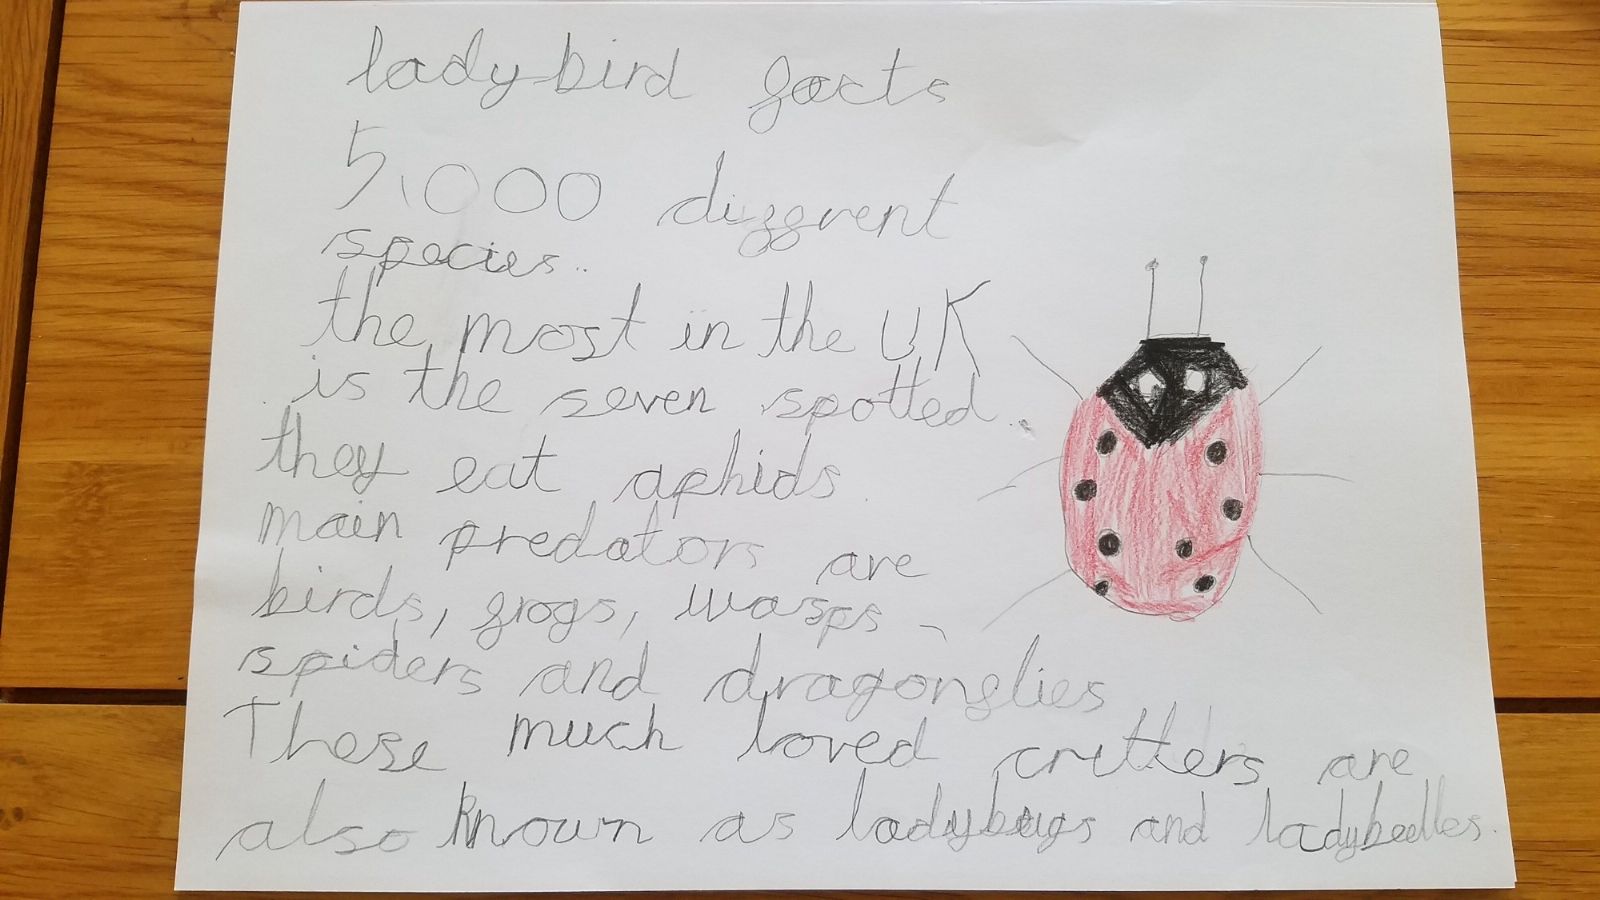 ladybird facts
5,000 diffrent
species.
the most in the UK
is the seven spotted.
they eat aphids.
main predators are
birds, frogs, wasps,
spiders and dragonflies
These much loved critters are
also known as ladybugs and ladybeetles.